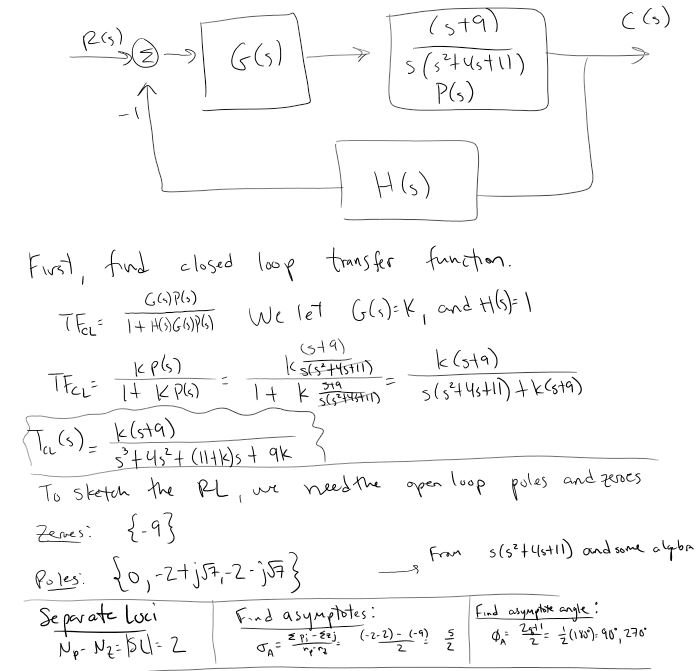 R(s)
Σ
G(s)
(s+9)
s(s²+4s+11)
P(s)
C(s)
-1
H(s)
First, find closed loop transfer function.
TF_CL = G(s)P(s) / 1+H(s)G(s)P(s) We let G(s)=K, and H(s)=1
TF_CL = K P(s) / 1+ K P(s) = K (s+9)/s(s²+4s+11) / 1 + K s+9/s(s²+4s+11) = K(s+9) / s(s²+4s+11)+K(s+9)
T_CL(s) = K(s+9) / s³+4s²+(11+K)s+9K
To sketch the RL, we need the open loop poles and zeroes
Zeroes: {-9}
Poles: {0, -2+j√7, -2-j√7} → From s(s²+4s+11) and some algebra
Separate Loci
N_P - N_Z = |SL| = 2
Find asymptotes:
σ_A = Σp_i - Σz_j / n_p-n_z = (-2-2)-(-9) / 2 = 5/2
Find asymptote angle:
φ_A = 2q+1 / 2 = 1/2(180°)=90°, 270°